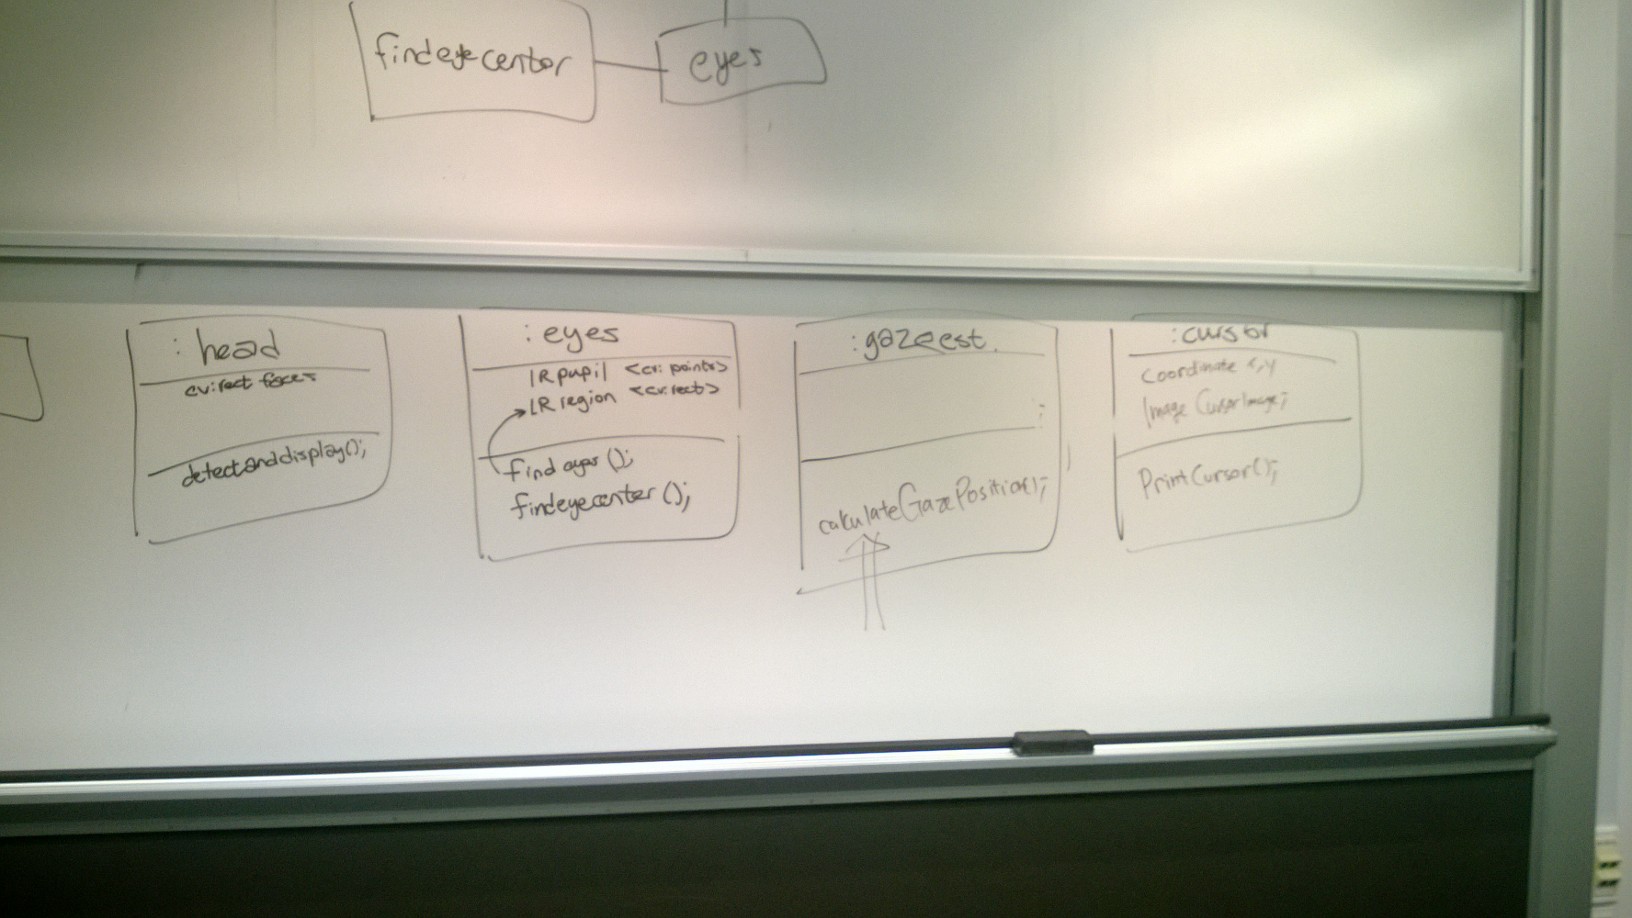 findeyecenter
eyes
:head
cv:rect faces
detectanddisplay();
:eyes
LR pupil <cv:points>
LR region <cv:rect>
find eyes ();
findeyecenter ();
:gazeest.
;
calculateGazePosition();
:cursor
Coordinate x,y
Image CursorImage;
PrintCursor();